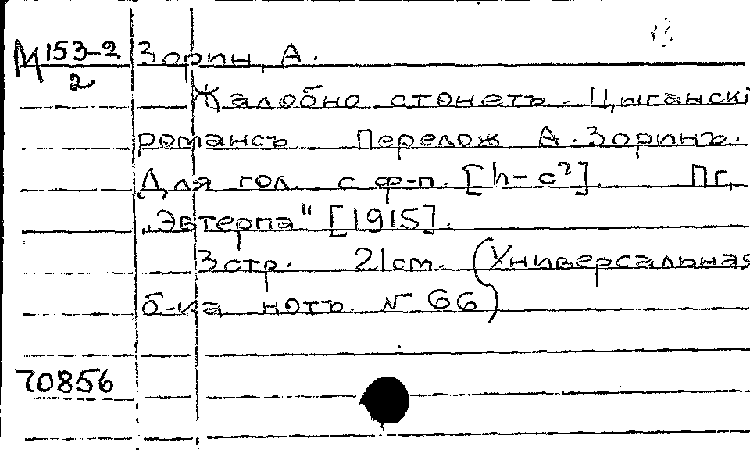 М 153-2 Зорин, А.
2
Жалобно стонетъ. Цыганскі
романсъ Перелож А. Зоринъ.
Для гол. с ф-п. [h-c²]. Пг,
„Эвтерпа" [1915].
3 стр. 21 cm. (Универсальная
б-ка нотъ № 66)
70856